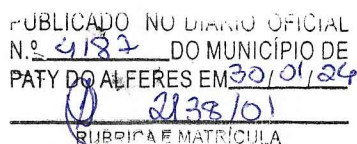 PUBLICADO NO DIÁRIO OFICIAL
N.º 4187 DO MUNICÍPIO DE
PATY DO ALFERES EM 30/01/24
2138/01
RUBRICA E MATRÍCULA